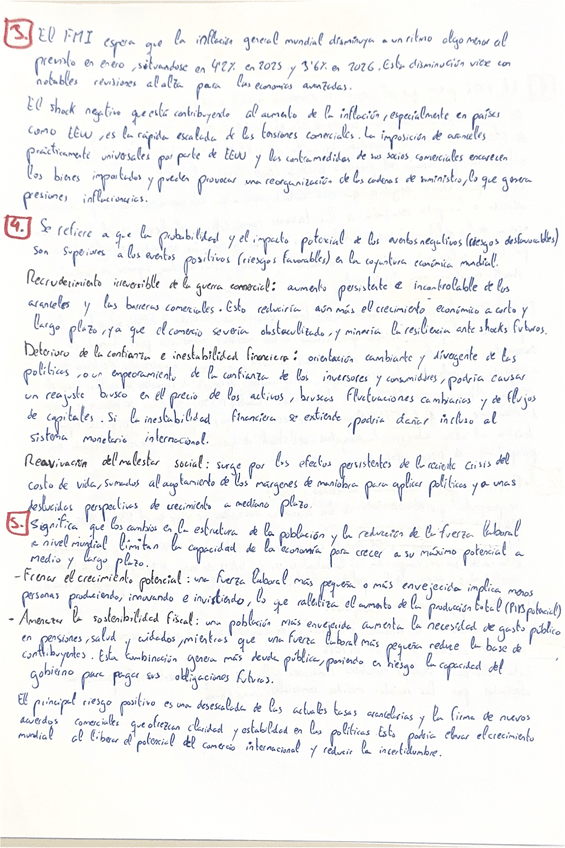 3. El FMI espera que la inflación general mundial disminuya a un ritmo algo menor al
previsto en enero, situandose en 4'2% en 2025 y 3'6% en 2026. Esta disminución viene con
notables revisiones al alza para las economías avanzadas.
El shock negativo que está contribuyendo al aumento de la inflación, especialmente en países
como EEUU, es la rápida escalada de las tensiones comerciales. La imposición de aranceles
prácticamente universales por parte de EEUU y las contramedidas de sus socios comerciales encarecen
los bienes importados y pueden provocar una reorganización de las cadenas de suministro, lo que genera
presiones inflacionarias.
4. Se refiere a que la probabilidad y el impacto potencial de los eventos negativos (riesgos desfavorables)
son superiores a los eventos positivos (riesgos favorables) en la coyuntura económica mundial.
Recrudecimiento irreversible de la guerra comercial: aumento persistente e incontrolable de los
aranceles y las barreras comerciales. Esto reduciría aún más el crecimiento económico a corto y
largo plazo, ya que el comercio se vería obstaculizado, y minaría la resiliencia ante shocks futuros.
Deterioro de la confianza e inestabilidad financiera: orientación cambiante y divergente de las
políticas, o un empeoramiento de la confianza de los inversores y consumidores, podría causar
un reajuste brusco en el precio de los activos, bruscas fluctuaciones cambiarias y de flujos
de capitales. Si la inestabilidad financiera se extiende, podría dañar incluso al
sistema monetario internacional.
Reavivación del malestar social: surge por los efectos persistentes de la reciente crisis del
costo de vida, sumados al agotamiento de los márgenes de maniobra para aplicar políticas y a unas
deslucidas perspectivas de crecimiento a mediano plazo.
5. Significa que los cambios en la estructura de la población y la reducción de la fuerza laboral
a nivel mundial limitan la capacidad de la economía para crecer a su máximo potencial a
medio y largo plazo.
- Frenar el crecimiento potencial: una fuerza laboral más pequeña o más envejecida implica menos
personas produciendo, innovando e invistiendo, lo que ralentiza el aumento de la producción total (PIB potencial)
- Amenazar la sostenibilidad fiscal: una población más envejecida aumenta la necesidad de gasto público
en pensiones, salud y cuidados, mientras que una fuerza laboral más pequeña reduce la base de
contribuyentes. Esta combinación genera más deuda pública, poniendo en riesgo la capacidad del
gobierno para pagar sus obligaciones futuras.
El principal riesgo positivo es una desescalada de las actuales tasas arancelarias y la firma de nuevos
acuerdos comerciales que ofrezcan claridad y estabilidad en las políticas. Esto podría elevar el crecimiento
mundial al liberar el potencial del comercio internacional y reducir la incertidumbre.